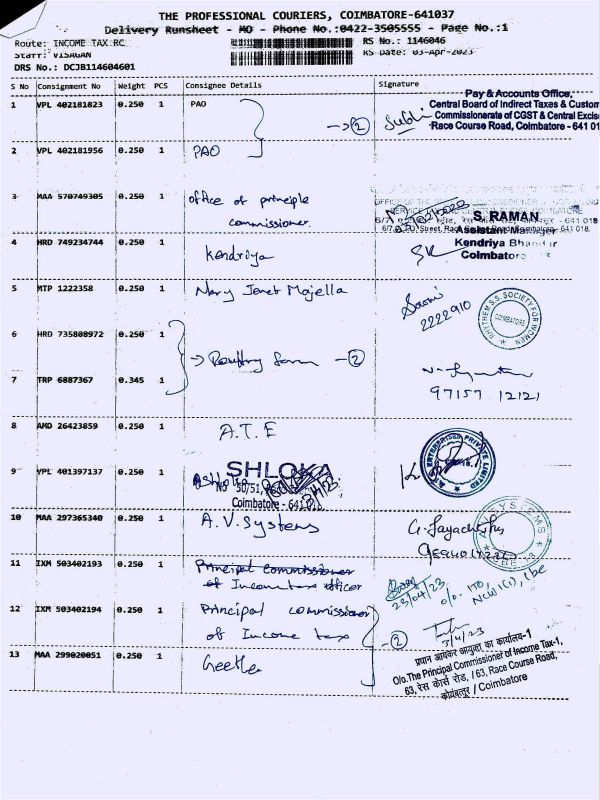 THE PROFESSIONAL COURIERS, COIMBATORE-641037
Delivery Runsheet - MO - Phone No.:0422-3505555 - Page No.:1
Route: INCOME TAX RC
RS No.: 1146046
Staff: VISAGAN
RS Date: 03-Apr-2023
DRS No.: DCJB114604601
S No Consignment No Weight PCS Consignee Details Signature
Pay & Accounts Office,
Central Board of Indirect Taxes & Custom
Commissionerate of CGST & Central Excis
Race Course Road, Coimbatore - 641 01
1 VPL 402181823 0.250 1 PAO
→ 2
2 VPL 402181956 0.250 1 PAO
3 MAA 570749305 0.250 1 office of principle
commissioner.
S. RAMAN
Assistant Manager
Kendriya Bhandar
Coimbatore
4 HRD 749234744 0.250 1 Kendriya
SR
5 MTP 1222358 0.250 1 Mary Jenet Majella
2222910
S.S. SOCIETY FOR WOMEN
COIMBATORE
6 HRD 735808972 0.250 1
→ Poultry farm - 2
7 TRP 6887367 0.345 1
97157 12121
8 AMD 26423859 0.250 1 A.T.E
ENTERPRISES PRIVATE LIMITED
9 VPL 401397137 0.250 1
SHLOKA
No 50/51,
Coimbatore - 641 018
10 MAA 297365340 0.250 1 A.V.Systems
SYSTEMS
11 IXM 503402193 0.250 1 Principal Commissioner
of Income tax officer
23/04/23
o/o. ITO,
NCW 1(1), Cbe
12 IXM 503402194 0.250 1 Principal commissioner
of Income tax
- 2
3/4/23
13 MAA 299020051 0.250 1 Geetha
प्रधान आयकर आयुक्त का कार्यालय-1
O/o.The Principal Commissioner of Income Tax-1,
63, रेस कोर्स रोड, / 63, Race Course Road,
कोयंबत्तूर / Coimbatore